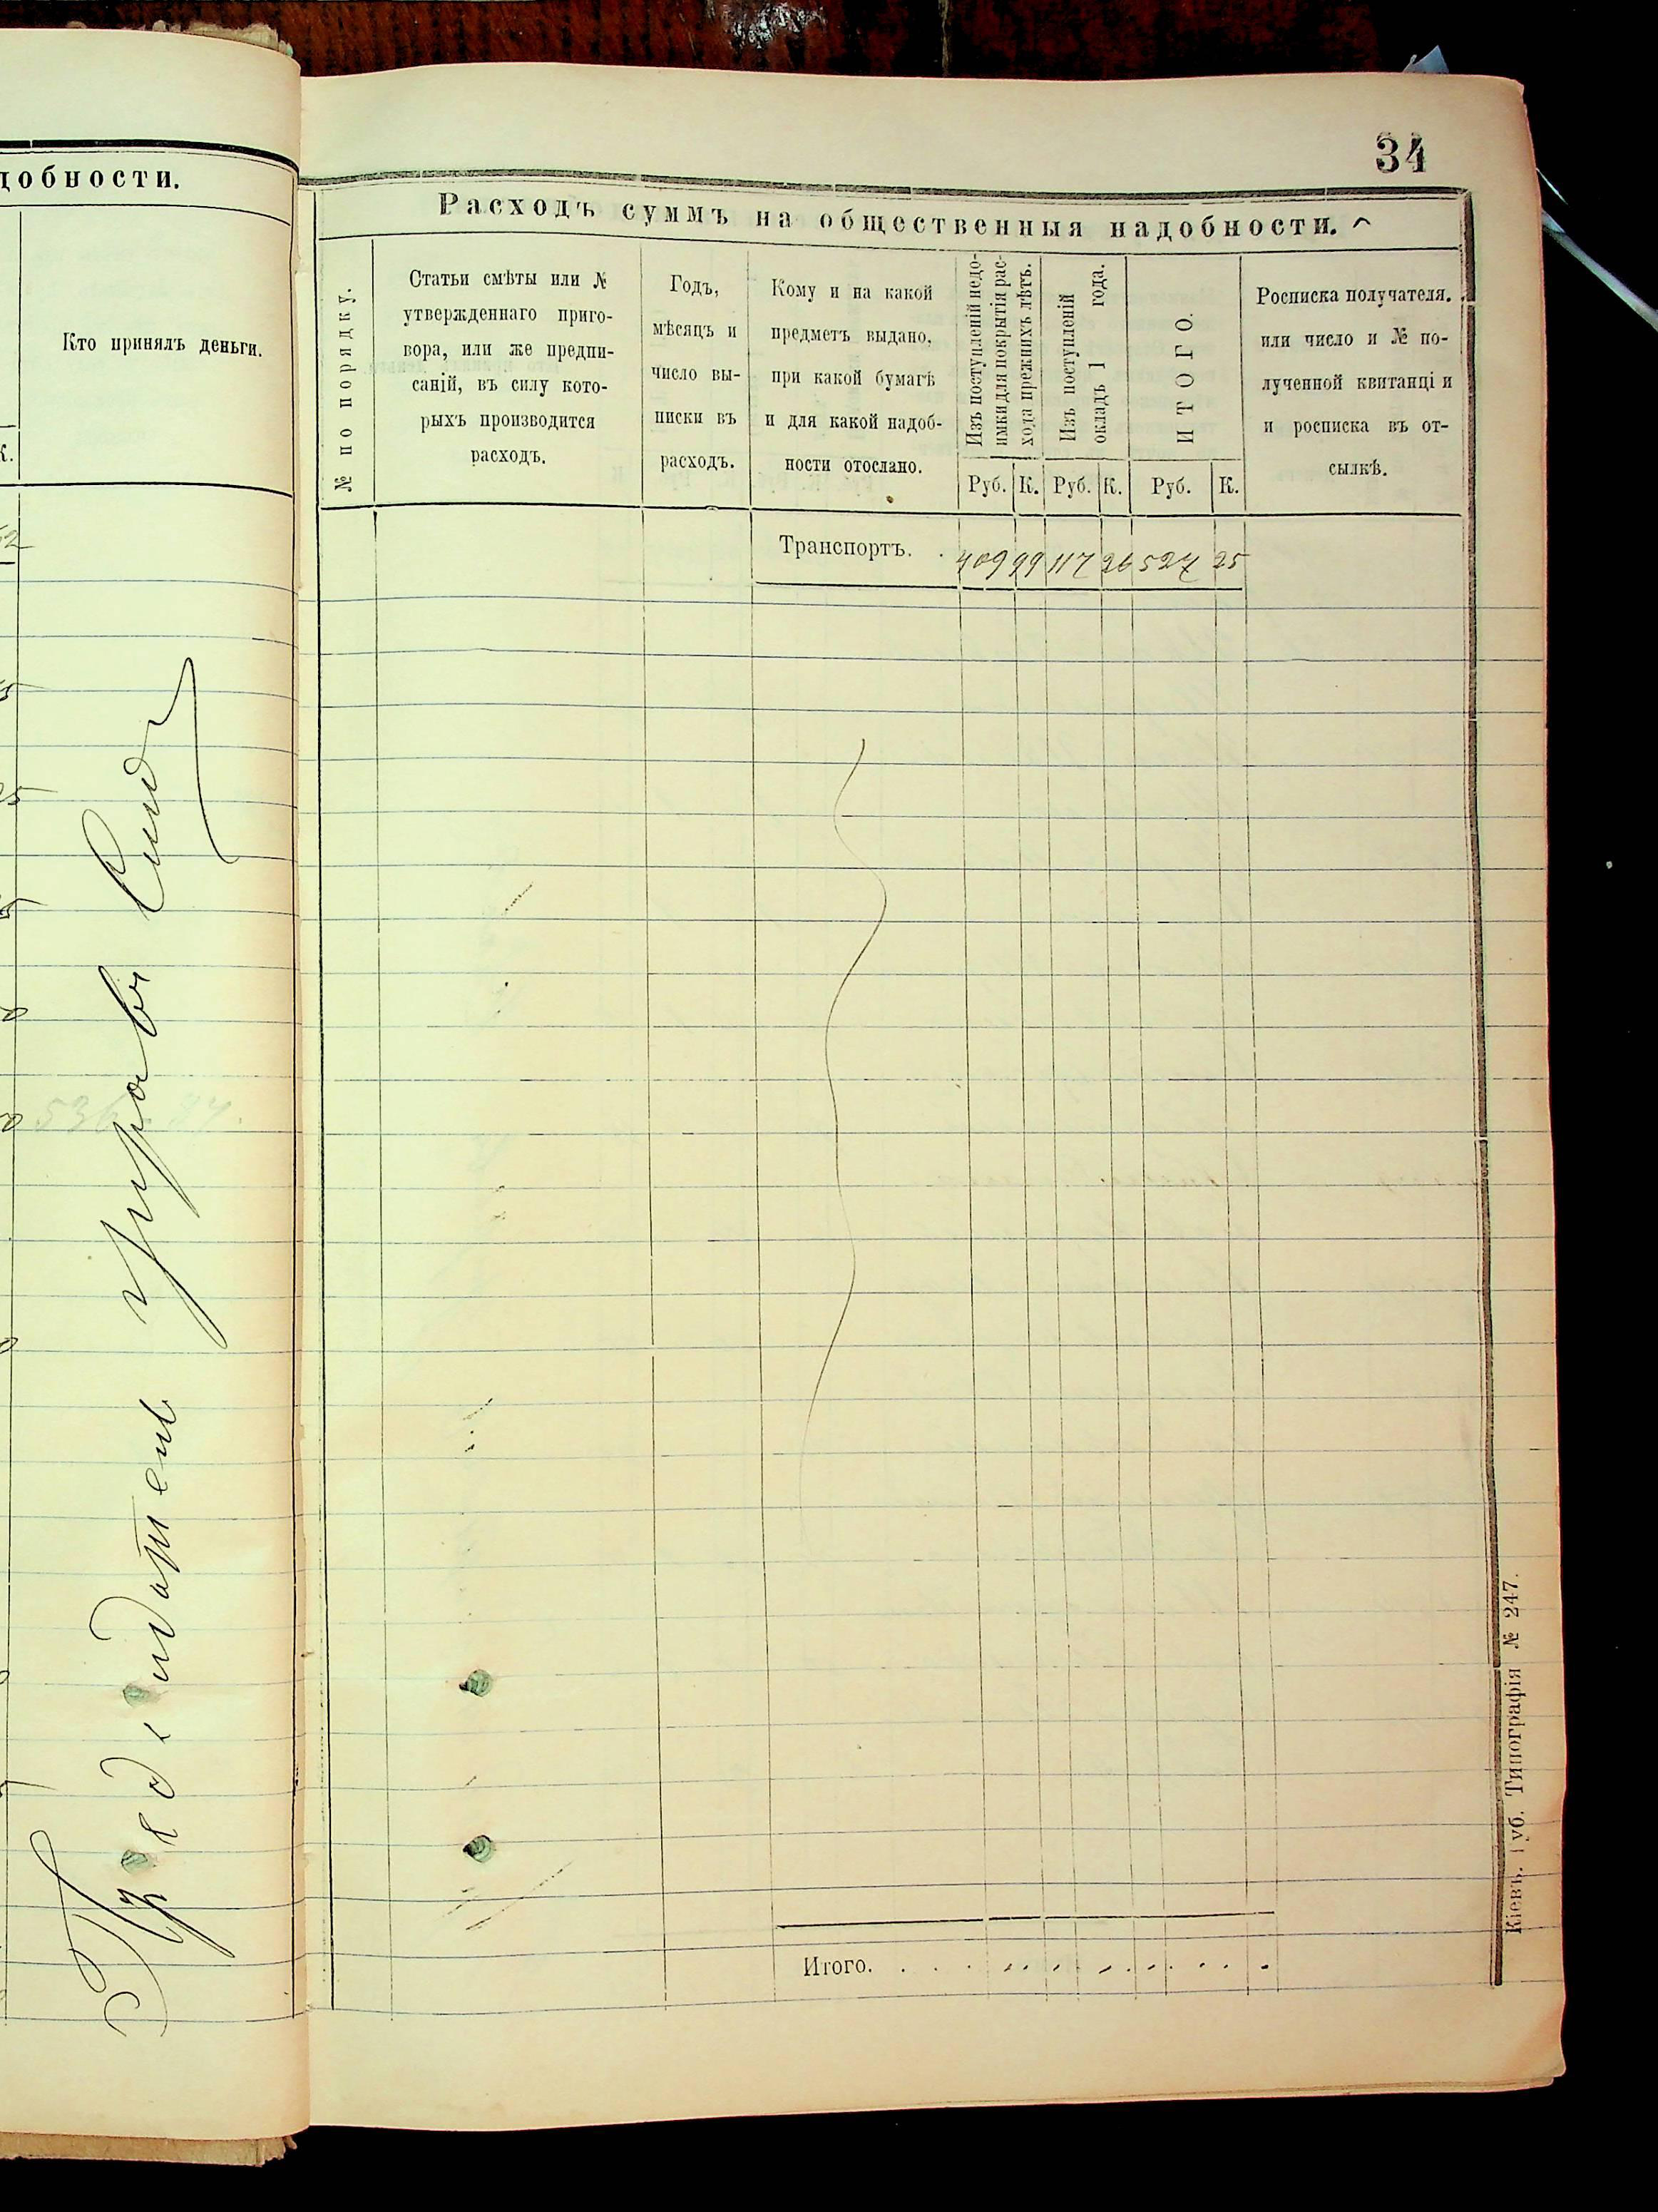 добности.
Кто принялъ деньги.
К.
34
Расходъ суммъ на общественныя надобности.
№ по порядку.
Статьи смѣты или №
утвержденнаго приго-
вора, или же предпи-
саній, въ силу кото-
рыхъ производится
расходъ.
Годъ,
мѣсяцъ и
число вы-
писки въ
расходъ.
Кому и на какой
предметъ выдано,
при какой бумагѣ
и для какой надоб-
ности отослано.
Изъ поступленій недо-
имки для покрытія рас-
хода прежнихъ лѣтъ.
Изъ поступленій
окладъ 1 года.
ИТОГО.
Росписка получателя.
или число и № по-
лученной квитанціи
и росписка въ от-
сылкѣ.
Руб. К. Руб. К. Руб. К.
Транспортъ. . 409 99 117 26 527 25
Итого.
Кіевъ. Губ. Типографія № 247.